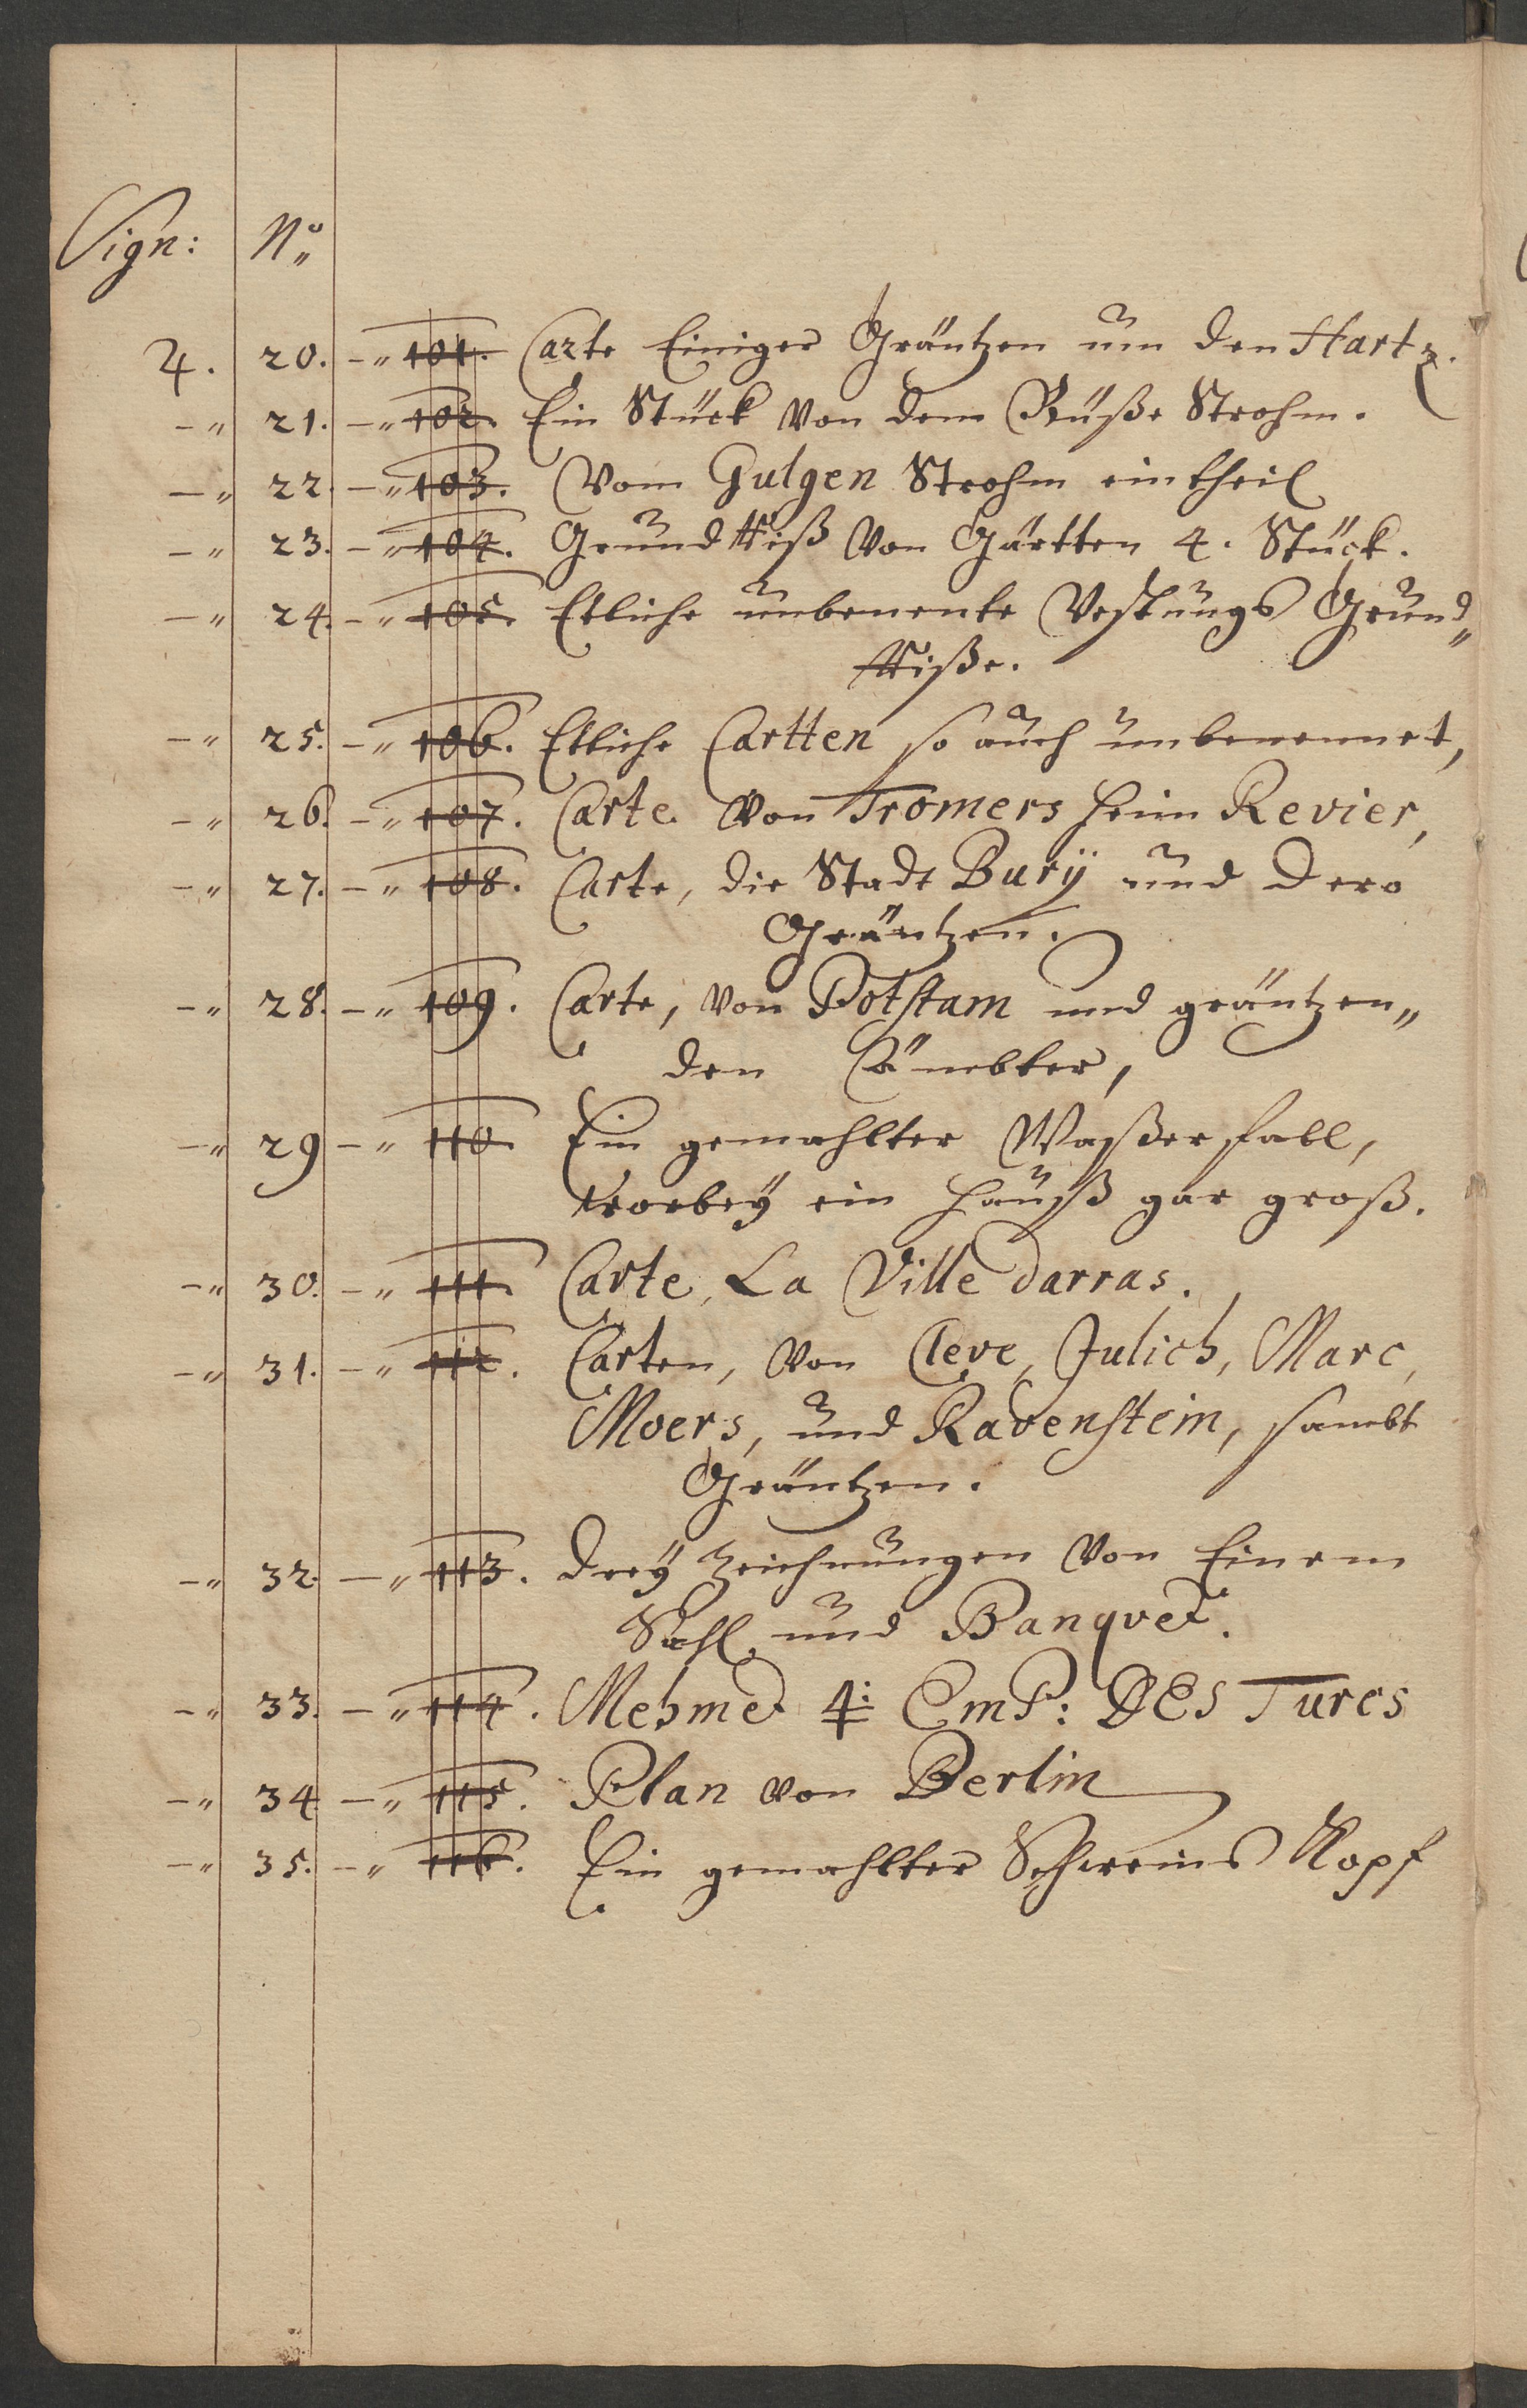 Sign: No
4. 20. -" 101. Carte Einiger Gräntzen um den Hartz.
-" 21. -" 102. Ein Stück von dem Rüße Strohm.
-" 22. -" 103. Vom Gulgen Strohm ein theil
-" 23. -" 104. Grundriß von Gärtten 4. Stück.
-" 24. -" 105. Etliche unbenente Vestungs Grund"
riße.
-" 25. -" 106. Etliche Cartten so auch unbenennet,
-" 26. -" 107. Carte von Tromers heim Revier,
-" 27. -" 108. Carte, die Stadt Burÿ und dero
Gräntzen.
-" 28. -" 109. Carte, von Potstam und gräntzen"
den Ämbter,
-" 29 -" 110. Ein gemahlter Waßerfall,
worbeÿ ein Hauß gar groß.
-" 30. -" 111. Carte, La Ville darras.
-" 31. -" 112. Carten, von Cleve, Julich, Marc,
Moers, und Ravenstein, sambt
Gräntzen.
-" 32. -" 113. Dreÿ Zeichnungen von Einem
Sahl, und Banqvet.
-" 33. -" 114. Mehmet 4: Emp: DES Turcs
-" 34. -" 115. Plan von Berlin
-" 35. -" 116. Ein gemahlter Schweins Kopf